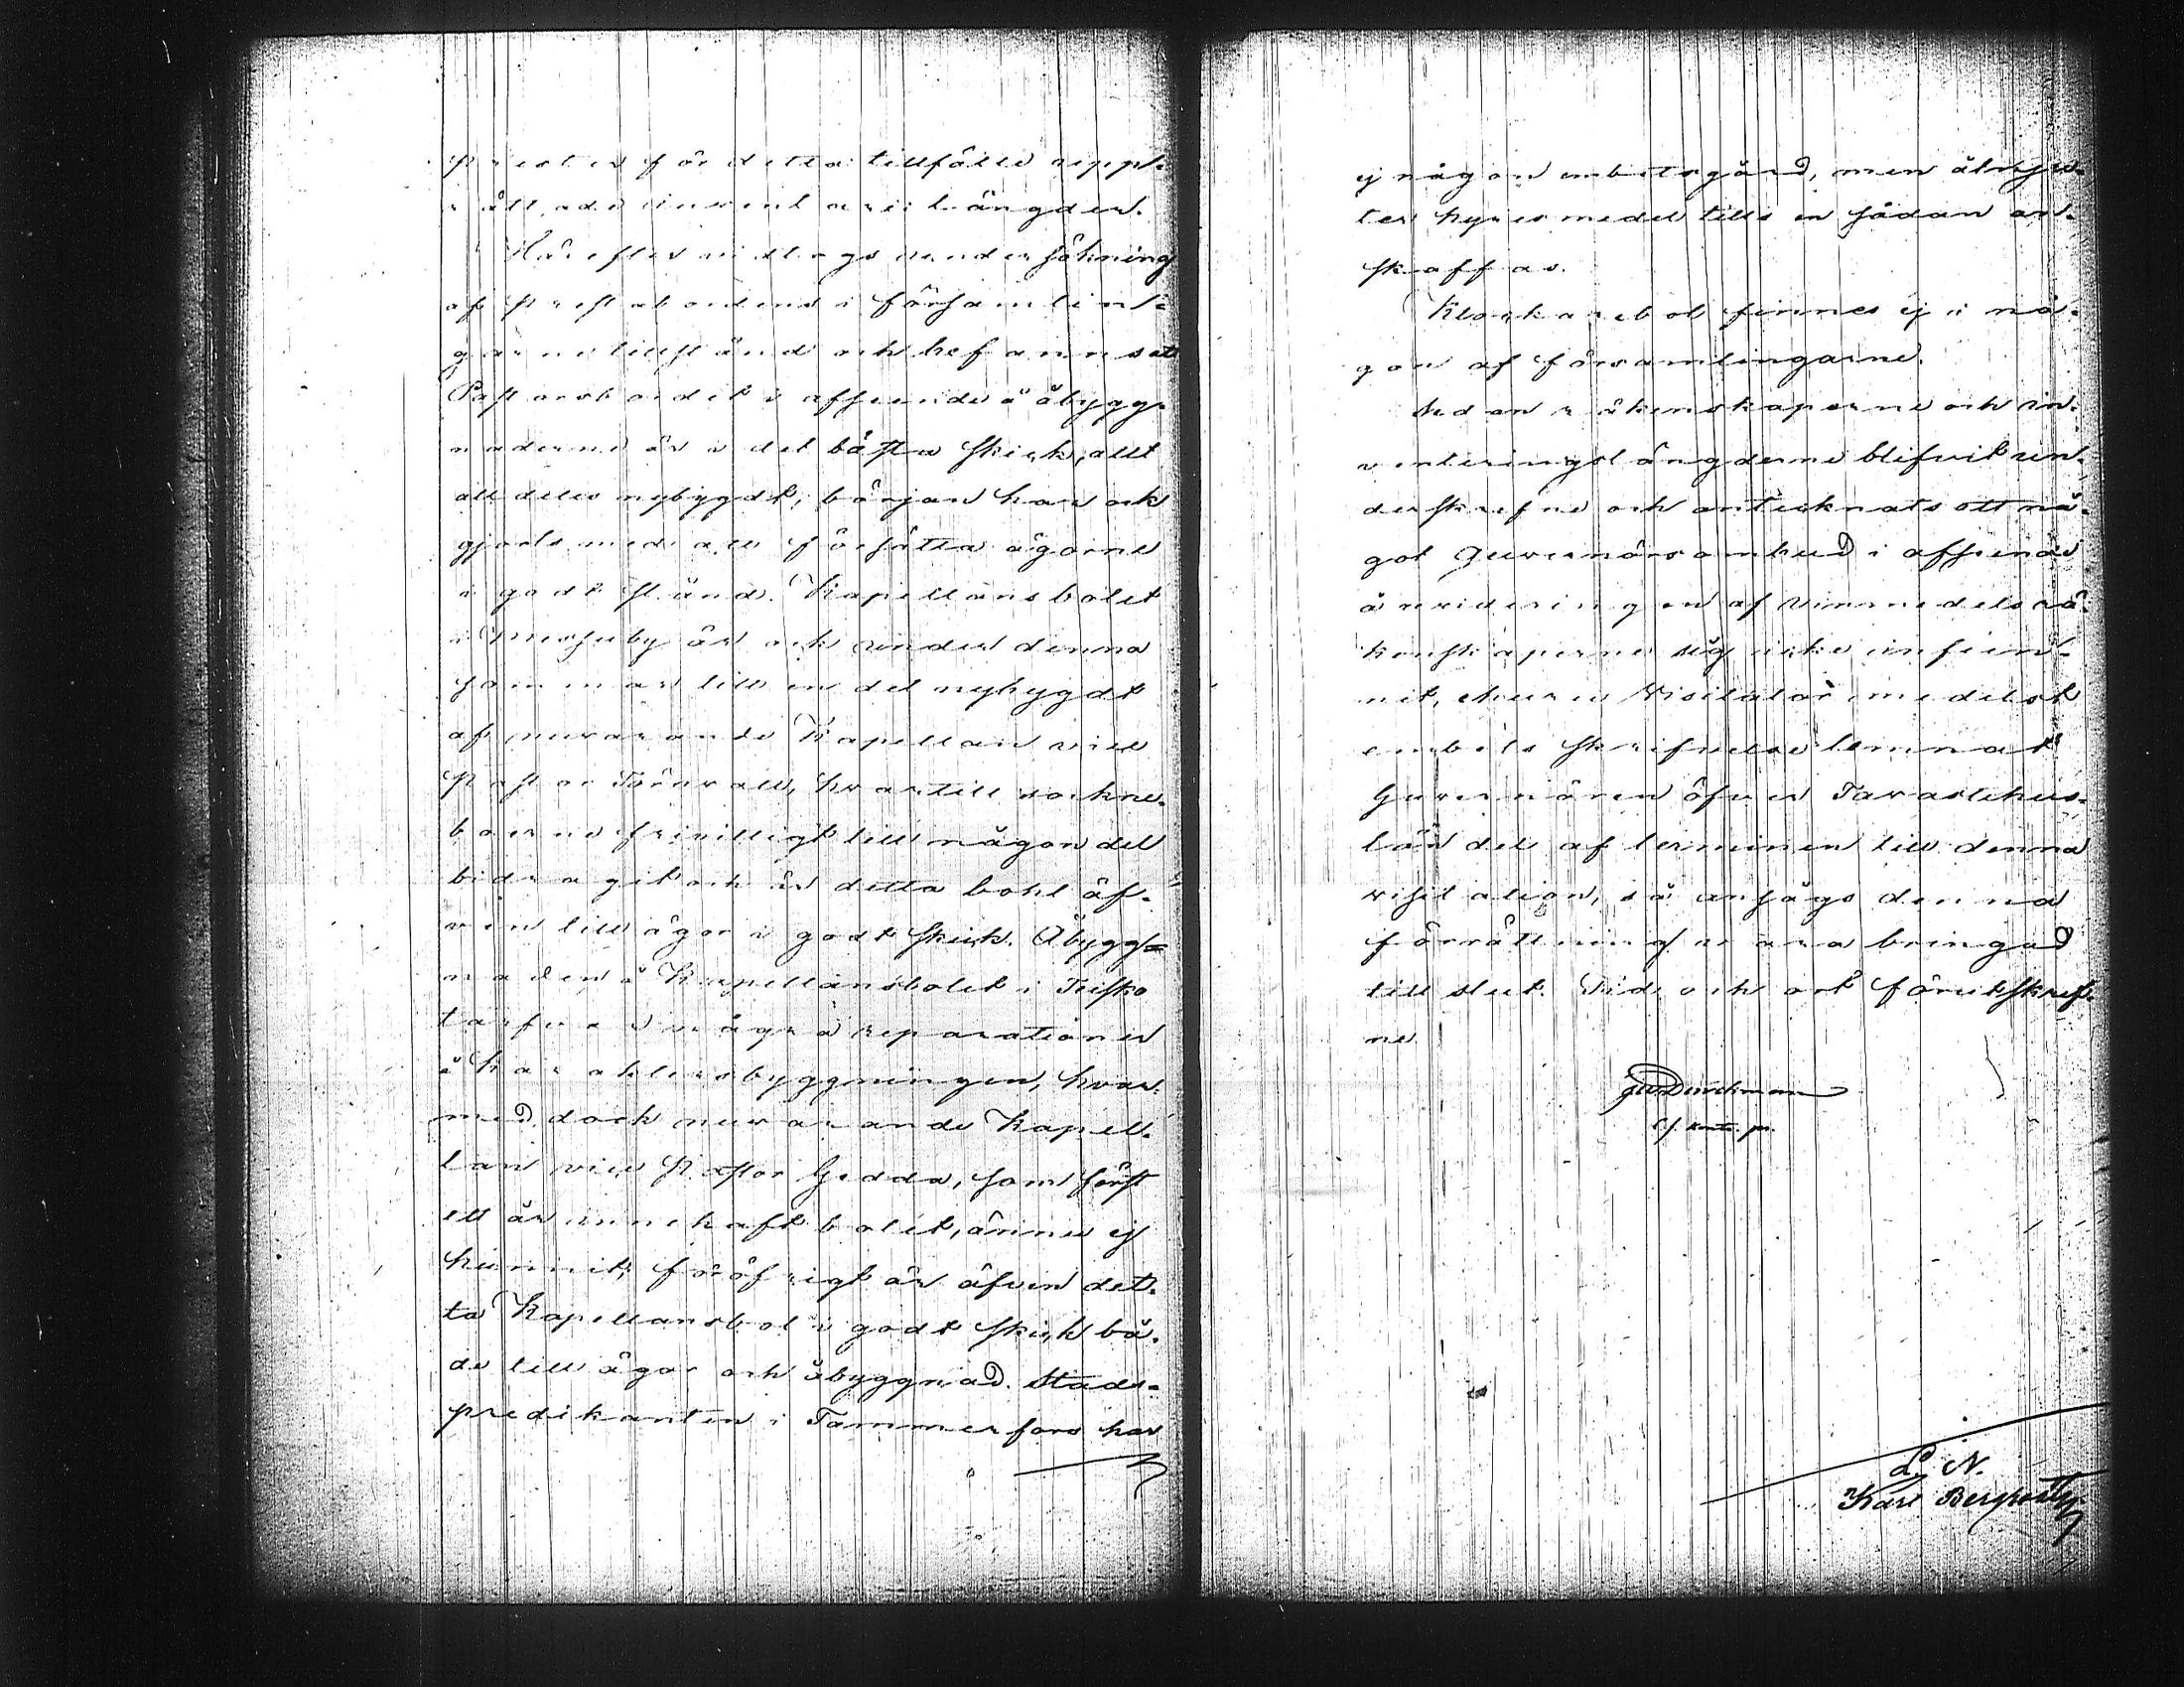 prester för detta tillfälle uppl-
rättade inventarii längder.
Härefter vidtogs undersökning
af prestabordens i församlin-
garne tillstånd och befanns at
Pastorsbordet i afseende å åbygg-
naderne är i det bästa skick, allt
alldeles nybygdt, början har ock
gjorts med att försätta ägorne
i godt stånd. Kapellansbolet
i Messuby är ock under denna
sommar till en del nybygdt
af nuvarande Kapellan vice
Pastor Törnvall, hvartill sockne-
boerne frivilligt till någon del
bidragit och är detta bohl äf-
ven till ägor i godt skick. Åbygg-
naden å Kapellansbolet i Teisko
tarfvar några reparationer
å karaktersbyggningen, hvar-
med dock nuvarande Kapel-
lan vice Pastor Gedda, som först
ett år innehaft bolet, ännu ej
hunnit, föröfrigt är äfven det-
ta Kapellansbol i godt skick bå-
de till ägor och åbyggnad. Stads-
predikanten i Tammerfors har
ej någon embetsgård, men åtnju-
ter hyresmedel tills en sådan an-
skaffas.
Klockarebol finnes ej i nå-
gon af församlingarne.
Sedan räkenskaperne och in-
venteringslängderne blifvit un-
derskrefne och antecknats att nå-
got Guvernörsombud i afseende
å revideringen af vinmedelsrä-
kenskaperne sig icke infun-
nit, ehuru Visitator medelst
embets skrifvelse lemnat
Guvernören öfver Tavastehus
län del af terminen till denna
visitation, så ansågs denna
förrättning vara bringad
till slut. Tid och ort förutskref-
ne.
Durchman
L. N.
Karl Bergroth